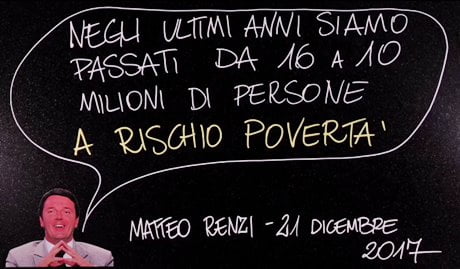 NEGLI ULTIMI ANNI SIAMO
PASSATI DA 16 A 10
MILIONI DI PERSONE
A RISCHIO POVERTA'
MATTEO RENZI - 21 DICEMBRE
2017